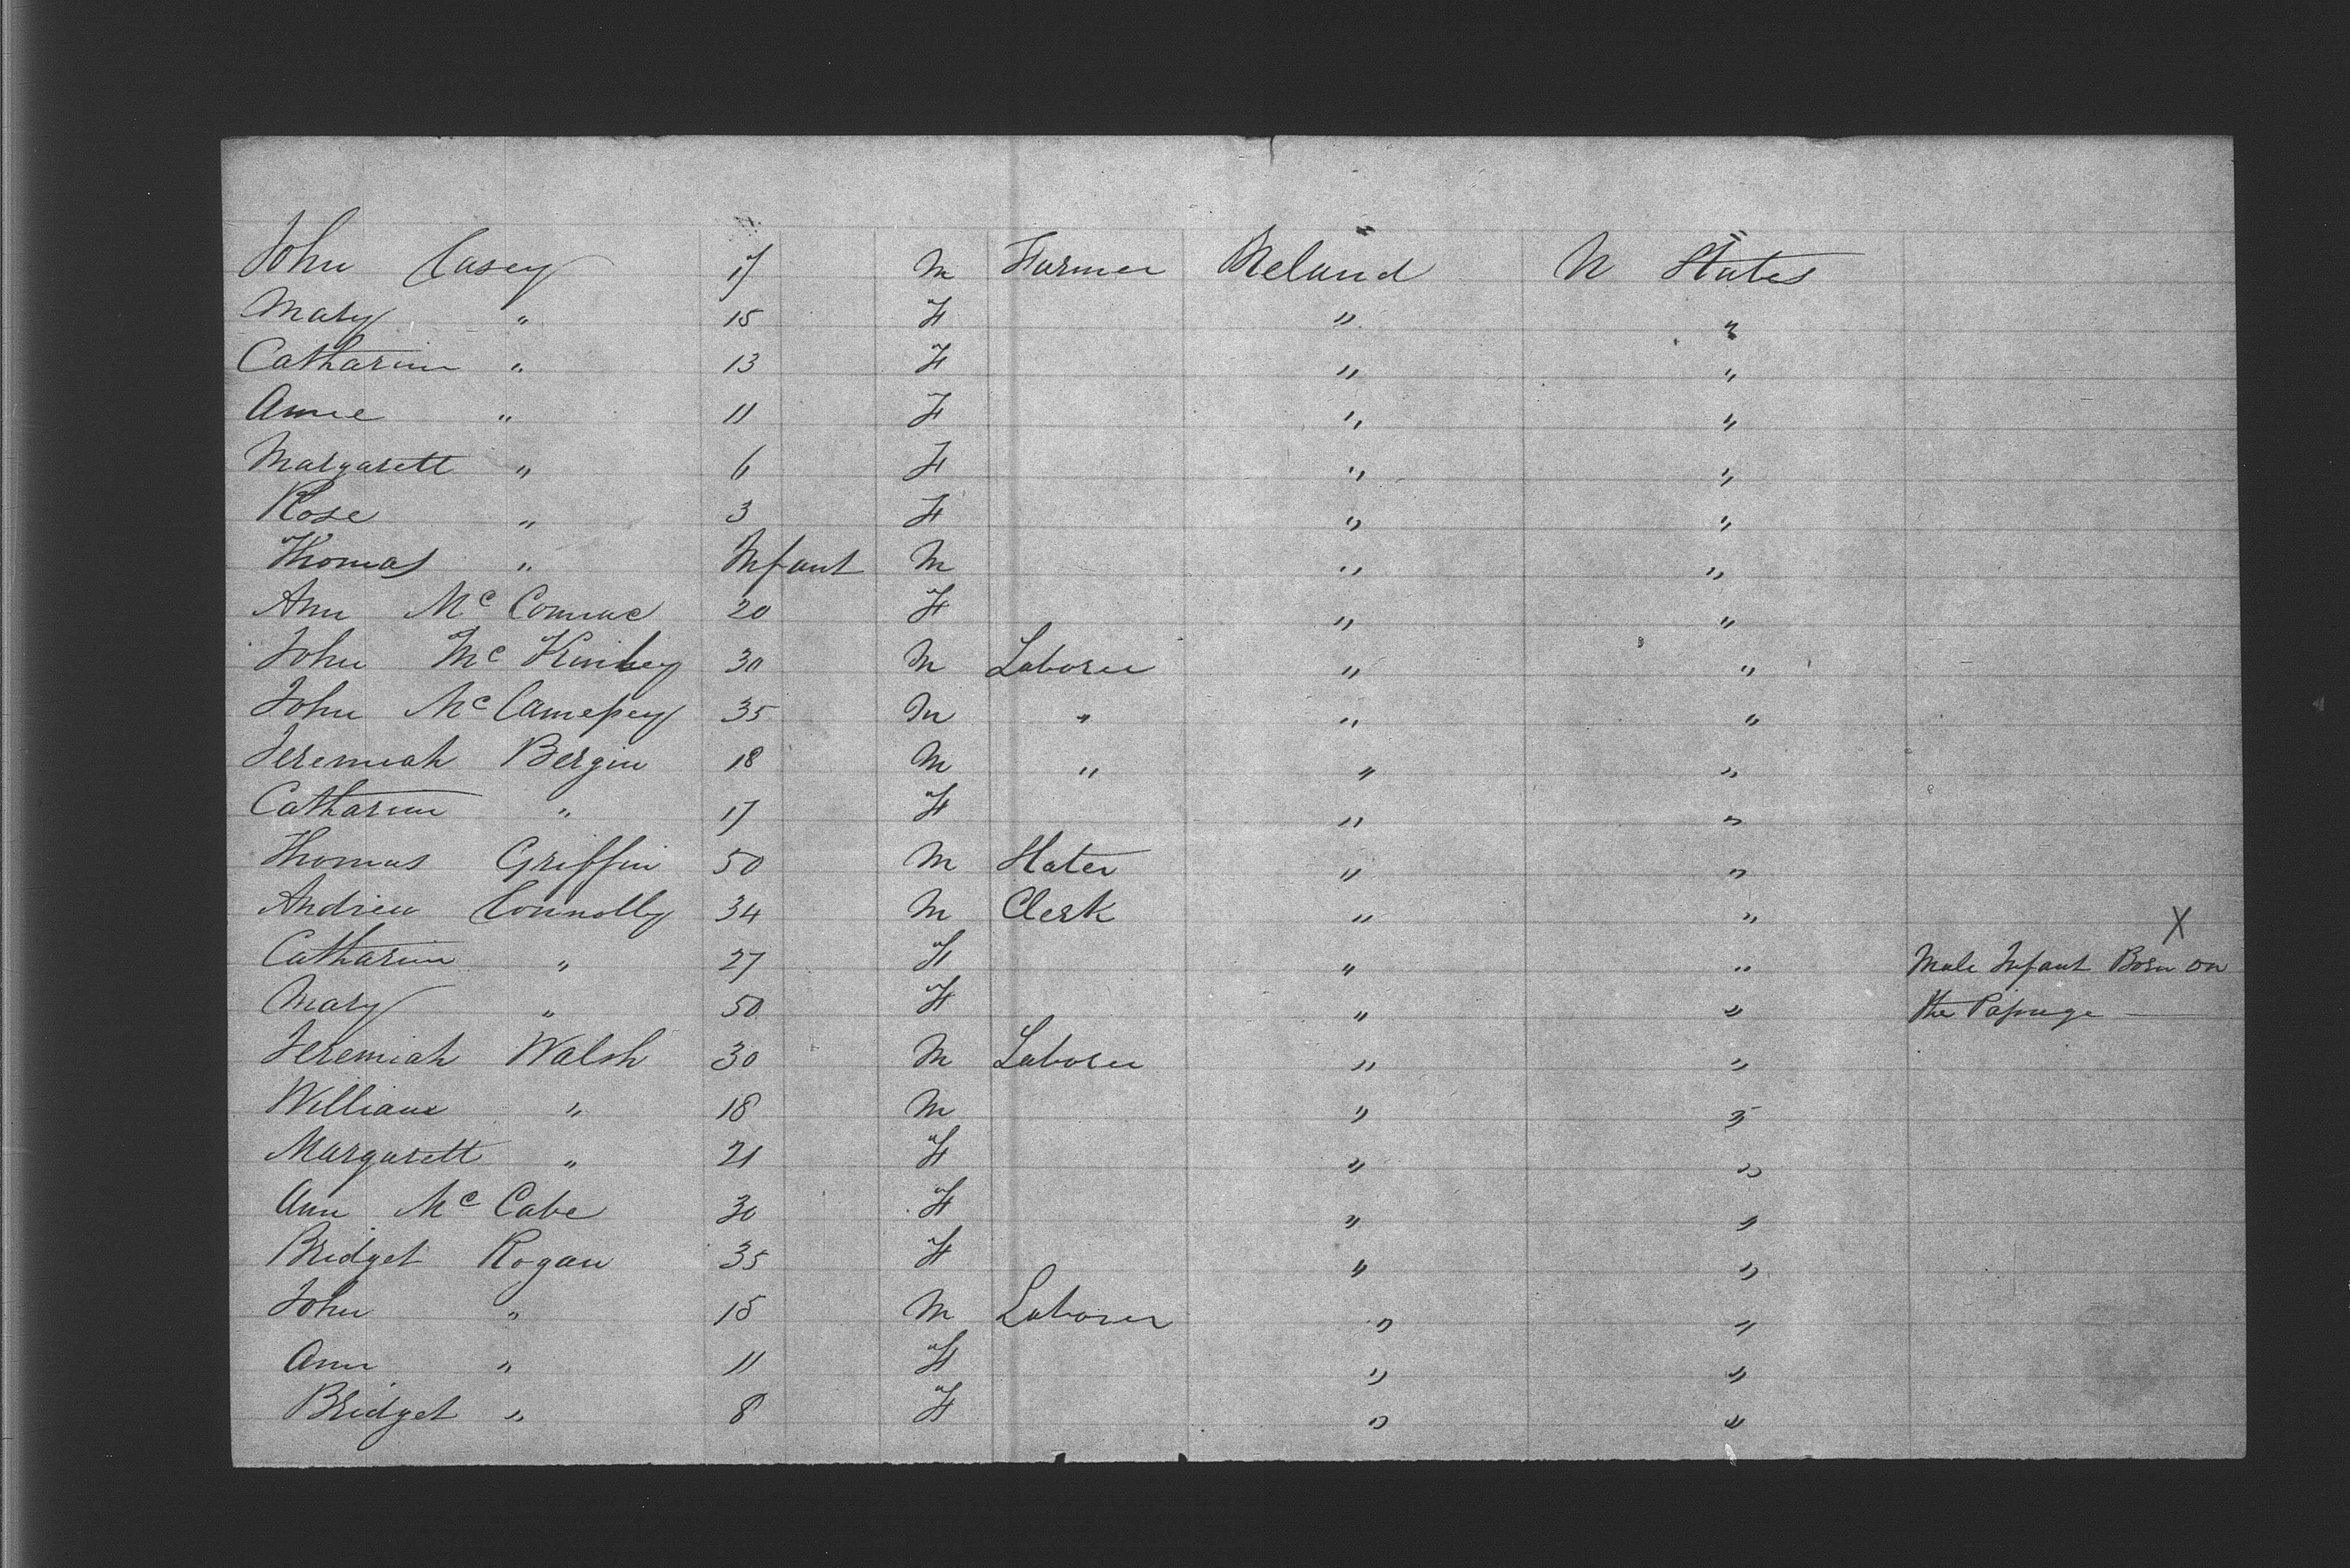 John Casey 17 M Farmer Ireland U States
Mary " 15 F " "
Catharine " 13 F " "
Anne " 11 F " "
Margarett " 6 F " "
Rose " 3 F " "
Thomas " Infant M " "
Ann Mc 20 F " "
John Mc 30 M Laborer " "
John Mc 35 M " " "
Jeremiah Bergin 18 M " " "
Catharine " 17 F " "
Thomas Griffin 50 M Slater " "
Andrew Connolly 34 M Clerk " " X
Catharine " 27 F " " Male Infant Born on
Mary " 50 F " " the Passage —
Jeremiah Walsh 30 M Laborer " "
William " 18 M " "
Margarett " 21 F " "
Ann McCabe 30 F " "
Bridget Rogan 35 F " "
John " 15 M Laborer " "
Ann " 11 F " "
Bridget " 8 F " "